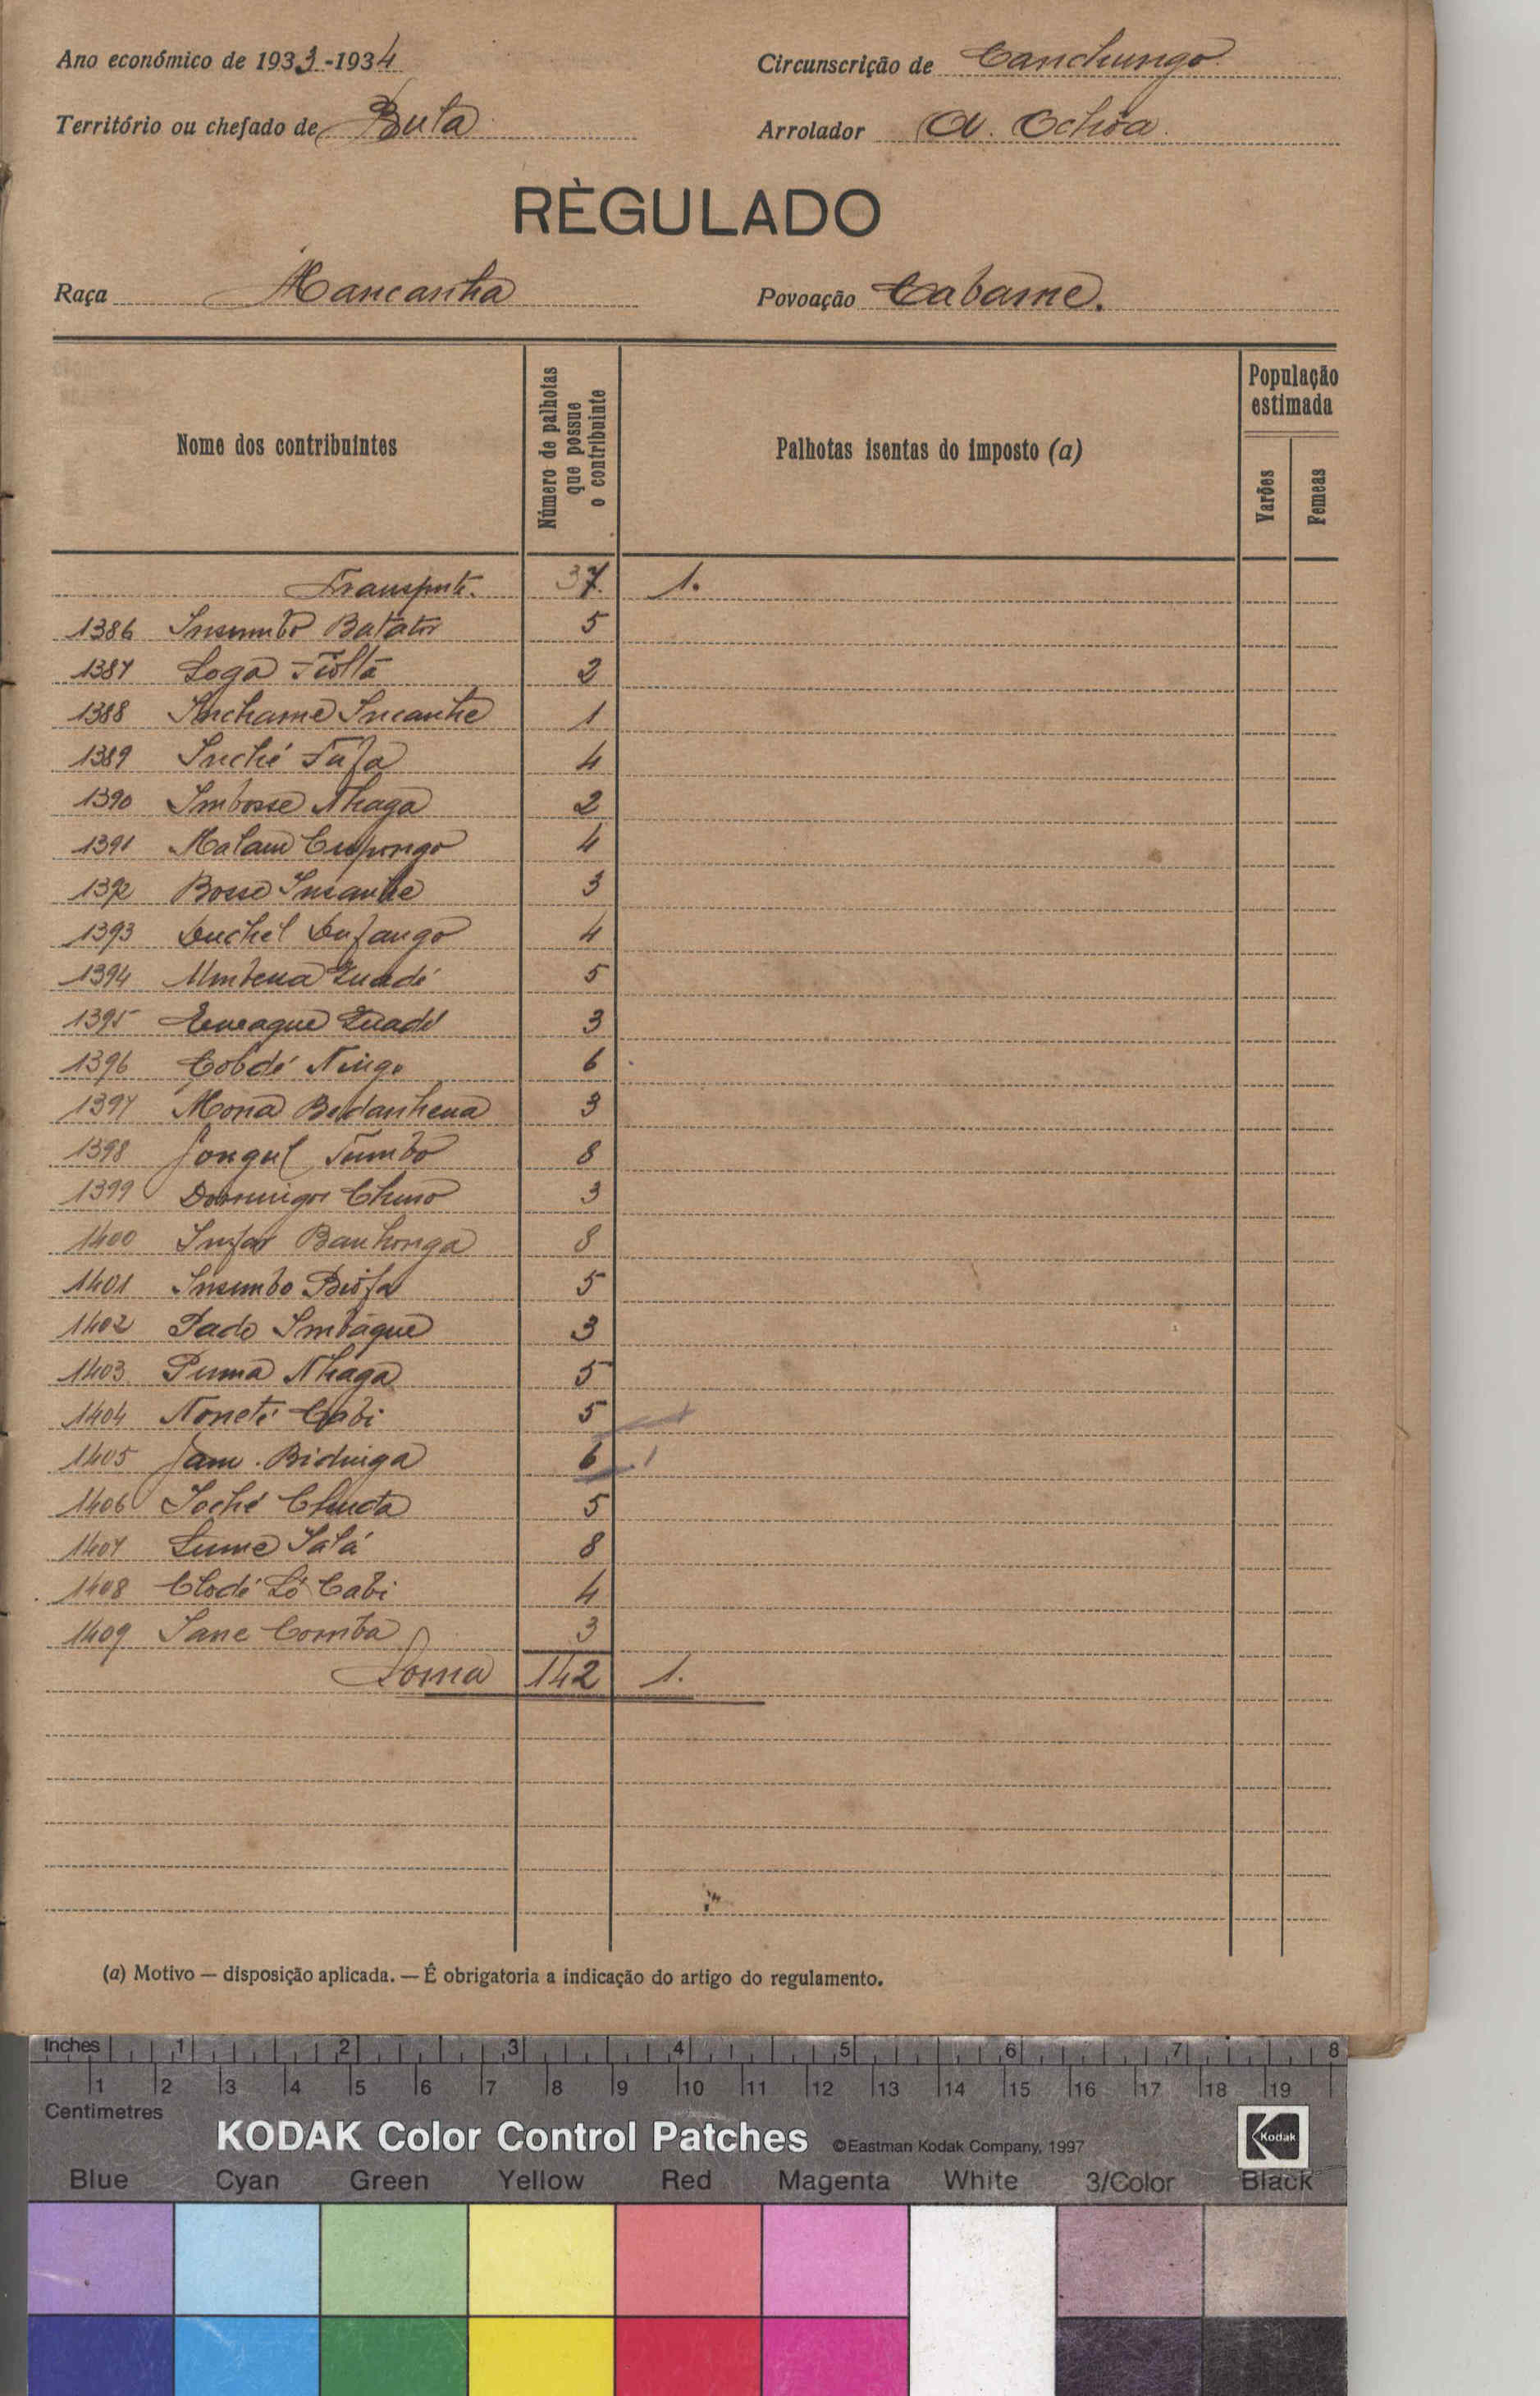 Ano económico de 1933-1934
Circunscrição de Canchungo
Território ou chefado de Bula
Arrolador A. Ochôa
RÈGULADO
Raça Mancanha
Povoação Cabame.
Nome dos contribuintes
Número de palhotas que possue o contribuinte
Palhotas isentas do imposto (a)
População estimada
Varões
Femeas
Transporte. 37. 1.
1386 Insumbo Batator 5
1387 Loga 2
1388 Anchame Incanhe 1
1389 Inché Fafa 4
1390 Imbosse Nhaga 2
1391 Malam Cupongo 4
1392 Bosse 3
1393 4
1394 Umbena Quadé 5
1395 Quadé 3
1396 Cobdé Ningo 6
1397 Mona Bedanhena 3
1398 Jongul Tumbo 8
1399 Domingos 3
1400 Banhonga 8
1401 Insumbo Biofa 5
1402 Pade Imbaque 3
1403 Puma Nhaga 5
1404 Noneté Cabi 5
1405 Jam. Bidinga 6 1
1406 Joché Chucta 5
1407 Lume Salá 8
1408 Clodé Ló Cabi 4
1409 Sane Comba 3
Soma 142 1.
(a) Motivo — disposição aplicada. — É obrigatoria a indicação do artigo do regulamento.
Inches 1 2 3 4 5 6 7 8
1 2 3 4 5 6 7 8 9 10 11 12 13 14 15 16 17 18 19
Centimetres
KODAK Color Control Patches ©Eastman Kodak Company, 1997 Kodak
Blue Cyan Green Yellow Red Magenta White 3/Color Black